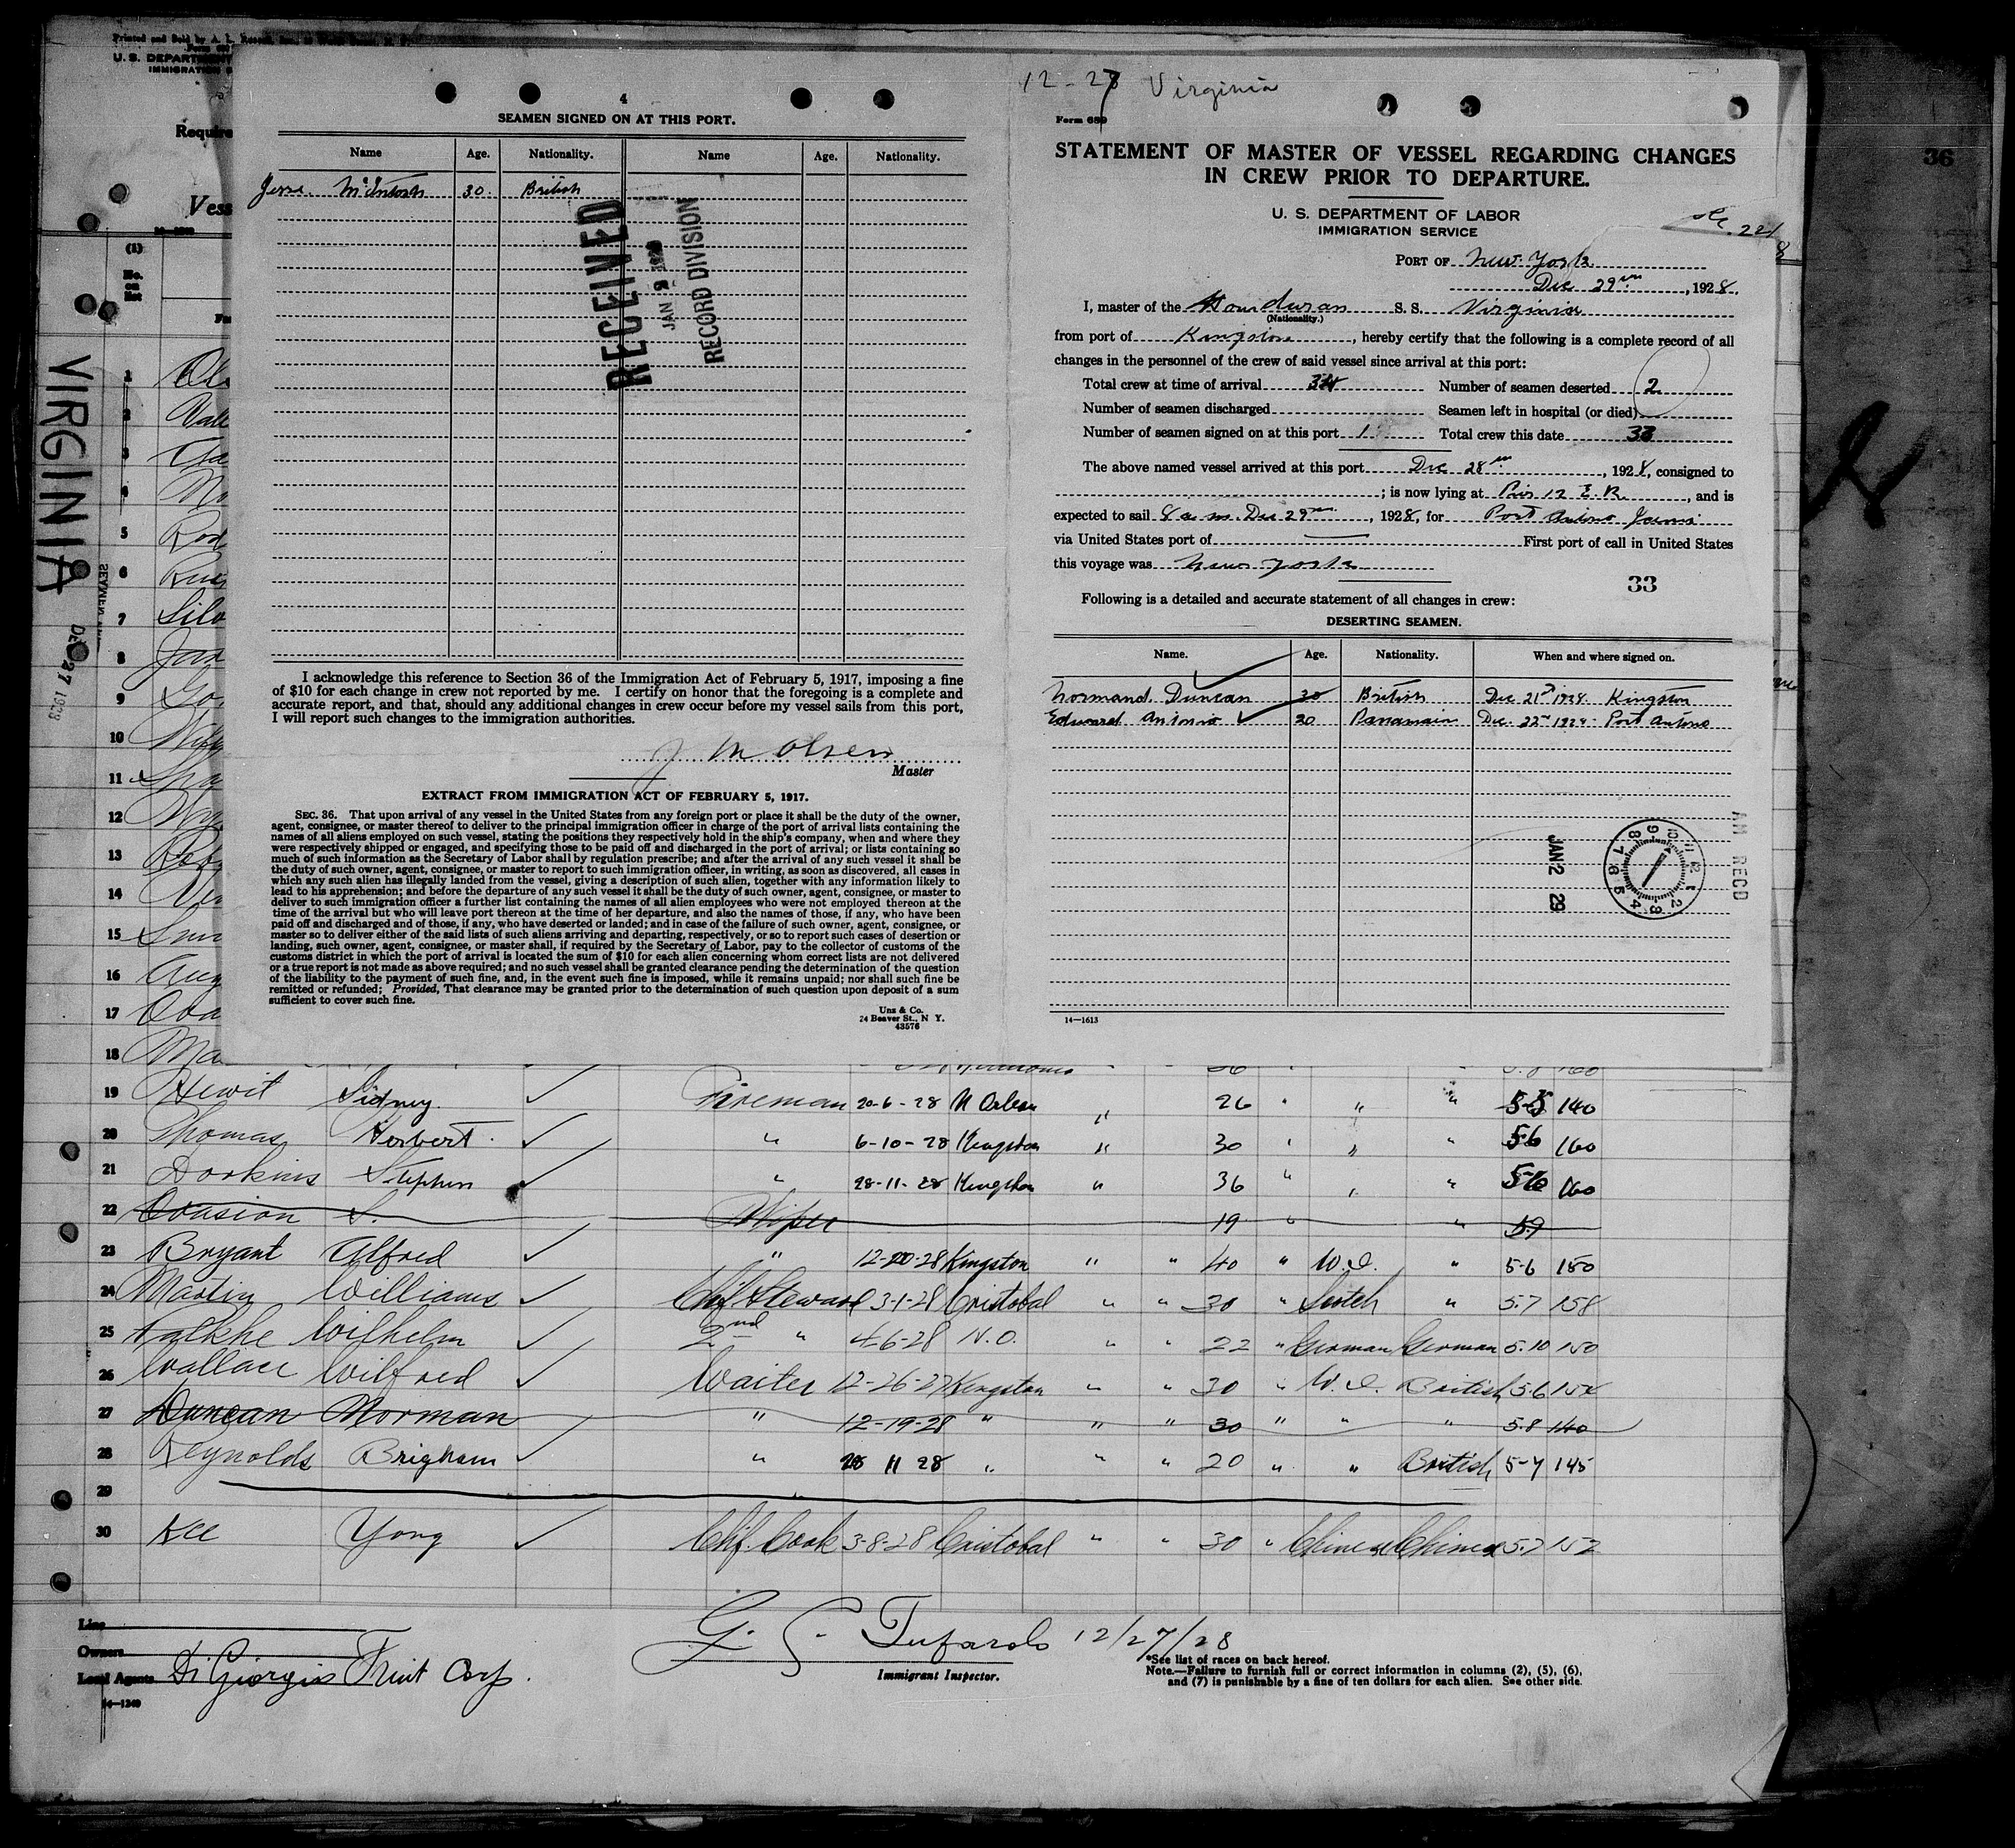 Printed and Sold by A. L.
U. S. DEPARTMENT
IMMIGRATION S
Require
Vess
14-1240
(1)
No.
on
list
VIRGINIA
DEC 27 1928
36
4
SEAMEN SIGNED ON AT THIS PORT.
Name Age. Nationality. Name Age. Nationality.
Jesse McIntosh 30. British
RECEIVED
JAN 9 1929
RECORD DIVISION
I acknowledge this reference to Section 36 of the Immigration Act of February 5, 1917, imposing a fine
of $10 for each change in crew not reported by me. I certify on honor that the foregoing is a complete and
accurate report, and that, should any additional changes in crew occur before my vessel sails from this port,
I will report such changes to the immigration authorities.
J M Olsen
Master
EXTRACT FROM IMMIGRATION ACT OF FEBRUARY 5, 1917.
SEC. 36. That upon arrival of any vessel in the United States from any foreign port or place it shall be the duty of the owner,
agent, consignee, or master thereof to deliver to the principal immigration officer in charge of the port of arrival lists containing the
names of all aliens employed on such vessel, stating the positions they respectively hold in the ship's company, when and where they
were respectively shipped or engaged, and specifying those to be paid off and discharged in the port of arrival; or lists containing so
much of such information as the Secretary of Labor shall by regulation prescribe; and after the arrival of any such vessel it shall be
the duty of such owner, agent, consignee, or master to report to such immigration officer, in writing, as soon as discovered, all cases in
which any such alien has illegally landed from the vessel, giving a description of such alien, together with any information likely to
lead to his apprehension; and before the departure of any such vessel it shall be the duty of such owner, agent, consignee, or master to
deliver to such immigration officer a further list containing the names of all alien employees who were not employed thereon at the
time of the arrival but who will leave port thereon at the time of her departure, and also the names of those, if any, who have been
paid off and discharged and of those, if any, who have deserted or landed; and in case of the failure of such owner, agent, consignee, or
master so to deliver either of the said lists of such aliens arriving and departing, respectively, or so to report such cases of desertion or
landing, such owner, agent, consignee, or master shall, if required by the Secretary of Labor, pay to the collector of customs of the
customs district in which the port of arrival is located the sum of $10 for each alien concerning whom correct lists are not delivered
or a true report is not made as above required; and no such vessel shall be granted clearance pending the determination of the question
of the liability to the payment of such fine, and, in the event such fine is imposed, while it remains unpaid; nor shall such fine be
remitted or refunded; Provided, That clearance may be granted prior to the determination of such question upon deposit of a sum
sufficient to cover such fine.
Unz & Co.
24 Beaver St., N. Y.
43576
12-27 Virginia
Form 689
STATEMENT OF MASTER OF VESSEL REGARDING CHANGES
IN CREW PRIOR TO DEPARTURE.
U. S. DEPARTMENT OF LABOR
IMMIGRATION SERVICE
PORT OF New York
Dec 29th, 1928.
I, master of the Honduran S. S. Virginia
(Nationality.)
from port of Kingston, hereby certify that the following is a complete record of all
changes in the personnel of the crew of said vessel since arrival at this port:
Total crew at time of arrival 34 Number of seamen deserted 2
Number of seamen discharged Seamen left in hospital (or died)
Number of seamen signed on at this port 1 Total crew this date 33
The above named vessel arrived at this port Dec 28th, 1928, consigned to
; is now lying at Pier 12 E. R., and is
expected to sail 8 a.m. Dec 29th, 1928, for Port Antonio Jama
via United States port of First port of call in United States
this voyage was New York
33
Following is a detailed and accurate statement of all changes in crew:
DESERTING SEAMEN.
Name. Age. Nationality. When and where signed on.
Normand Duncan 30 British Dec 21st 1928 Kingston
Edward Antonio 20 Panamain Dec 22nd 1928 Port Antonio
JAN 2 29
AM RECD
14-1613
1
2
3
4
5 Rod
6
7 Silv
8
9 Go
10
11
12
13 Rob
14
15
16 Aug
17
18 Ma
19 Hewit Sidney Fireman 20-6-28 N Orlean " 26 " " " 5-5 140
20 Thomas Herbert " 6-10-28 Kingston " 30 " " " 5-6 160
21 Dorkins Stephen " 28-11-28 Kingston " 36 " " " 5-6 160
22 Ovasion S. Wiper 19 " " 5.9
23 Bryant Alfred " 12-20-28 Kingston " " 40 " W.I. " 5-6 150
24 Martin Williams Chif Steward 3-1-28 Cristobal " " 30 " Scotch " 5.7 158
25 Falkhe Wilhelm 2nd " 4-6-28 N.O. " " 22 " German German 5.10 150
26 Wallace Wilfred Waiter 12-26-27 Kingston " " 30 " W.I. British 5.6 154
27 Duncan Norman " 12-19-28 " " " 30 " " " 5.8 140
28 Reynolds Brigham " 28 11 28 " " " 20 " " British 5-7 145
29
30 Kee Yong Chif. Cook 3-8-28 Cristobal " " 30 " Chinese Chinese 5.7 152
Line
Owners
Local Agents Di Giorgio Fruit Corp.
14-1240
G. S. Tufarolo 12/27/28
Immigrant Inspector.
*See list of races on back hereof.
Note.—Failure to furnish full or correct information in columns (2), (5), (6),
and (7) is punishable by a fine of ten dollars for each alien. See other side.